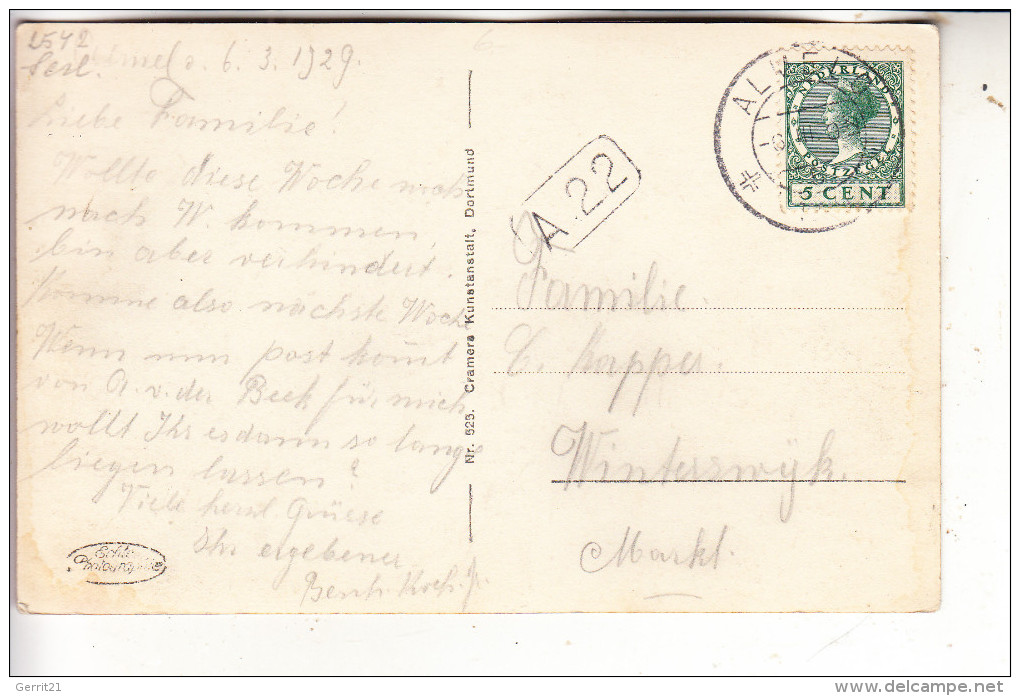 2542
6. 3. 1929.
Liebe Familie!
Wollte diese Woche noch
nach W. kommen,
bin aber verhindert.
Komme also nächste Woche
Wenn nun post kommt
von A. v. der Beek für mich
wollt Ihr es dann so lange
liegen lassen?
Viele herzl. Grüsse
Ihr ergebener
Echte
Photographie
Nr. 523. Cramers Kunstanstalt, Dortmund
A 22
NEDERLAND
POSTZEGEL
5 CENT
Familie
Winterswyk.
Markt.
Gerrit21
delcampe.net